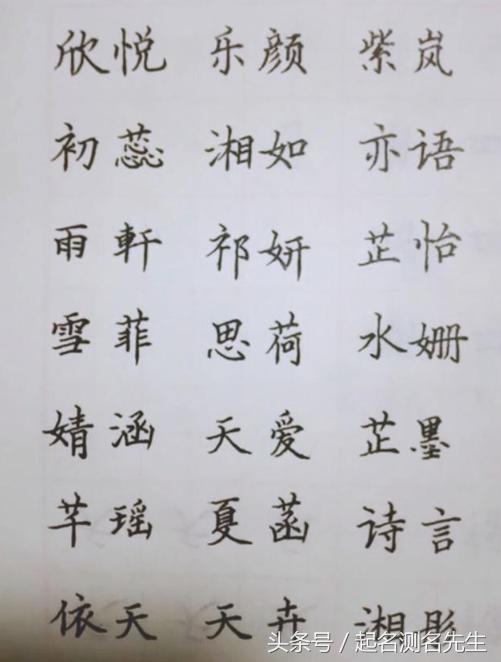 欣悦 乐颜 紫岚
初蕊 湘如 亦语
雨軒 祁妍 芷怡
雪菲 思荷 水姗
婧涵 天爱 芷墨
芊瑶 夏菡 诗言
依天 天卉 湘彤
头条号 / 起名测名先生